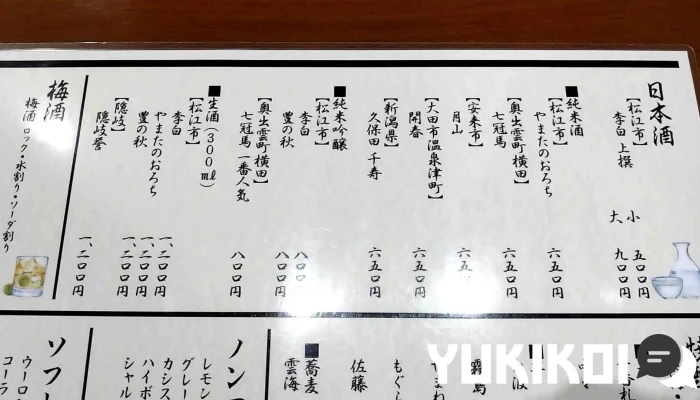 日本酒
【松江市】
李白 上撰
小 五〇〇円
大 九〇〇円
■純米酒
【松江市】
やまたのおろち 六五〇円
【奥出雲町横田】
七冠馬 六五〇円
【安来市】
月山 六五〇円
【大田市温泉津町】
開春 六五〇円
【新潟県】
久保田 千寿 六五〇円
■純米吟醸
【松江市】
李白 八〇〇円
豊の秋 八〇〇円
【奥出雲町横田】
七冠馬 一番人気 八〇〇円
■生酒（300㎖）
【松江市】
李白 一、二〇〇円
やまたのおろち 一、二〇〇円
豊の秋 一、二〇〇円
【隠岐】
隠岐誉 一、二〇〇円
梅酒
梅酒 ロック・水割り・ソーダ割り
霧島
もぐ
佐藤
■蕎麦
雲海
ノン
レモン
グレー
カシス
ハイボ
シャル
ソフ
ウーロン
コーラ
YUKIKOI